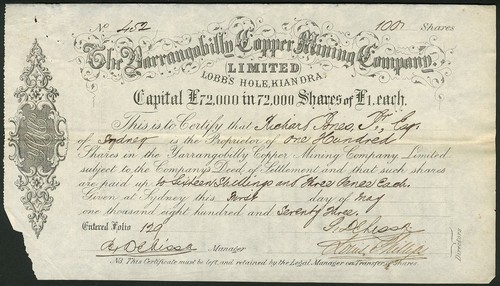 No 452 100 Shares
The Yarrangobilly Copper Mining Company,
LIMITED
LOBB'S HOLE, KIANDRA.
Capital £72,000 in 72,000 Shares of £1, each.
This is to Certify that Richard Jones,
of Sydney is the Proprietor of One Hundred
Shares in the Yarrangobilly Copper Mining Company Limited
subject to the Company's Deed of Settlement and that such shares
are paid up to Sixteen Shillings and Three Pence Each.
Given at Sydney this First day of May
one thousand eight hundred and Seventy Three.
Entered Folio 129
Manager
Directors
N.B. This Certificate must be left and retained by the Legal Manager on Transfer of Shares.